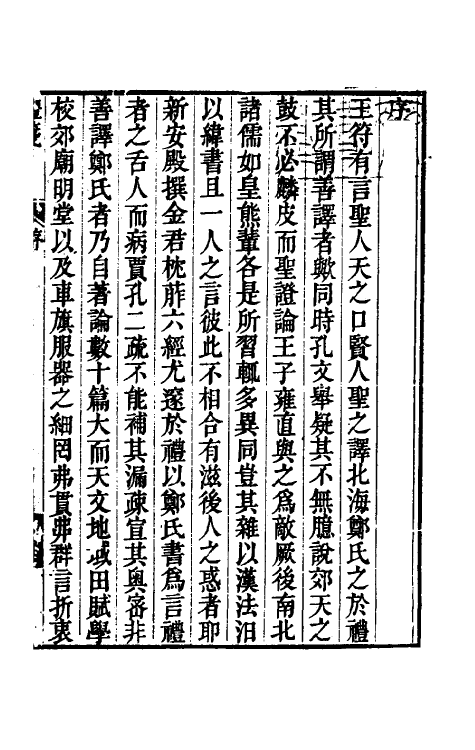 序
王符有言聖人天之口賢人聖之譯北海鄭氏之於禮
其所謂善譯者歟同時孔文舉疑其不無臆說郊天之
鼓不必麟皮而聖證論王子雍直與之爲敵厥後南北
諸儒如皇熊輩各是所習輒多異同豈其雜以漢法汨
以緯書且一人之言彼此不相合有滋後人之惑者耶
新安殿撰金君枕葄六經尤邃於禮以鄭氏書爲言禮
者之舌人而病賈孔二疏不能補其漏疎宣其奥密非
善譯鄭氏者乃自著論數十篇大而天文地域田賦學
校郊廟明堂以及車旗服器之細罔弗貫弗群言折衷
序